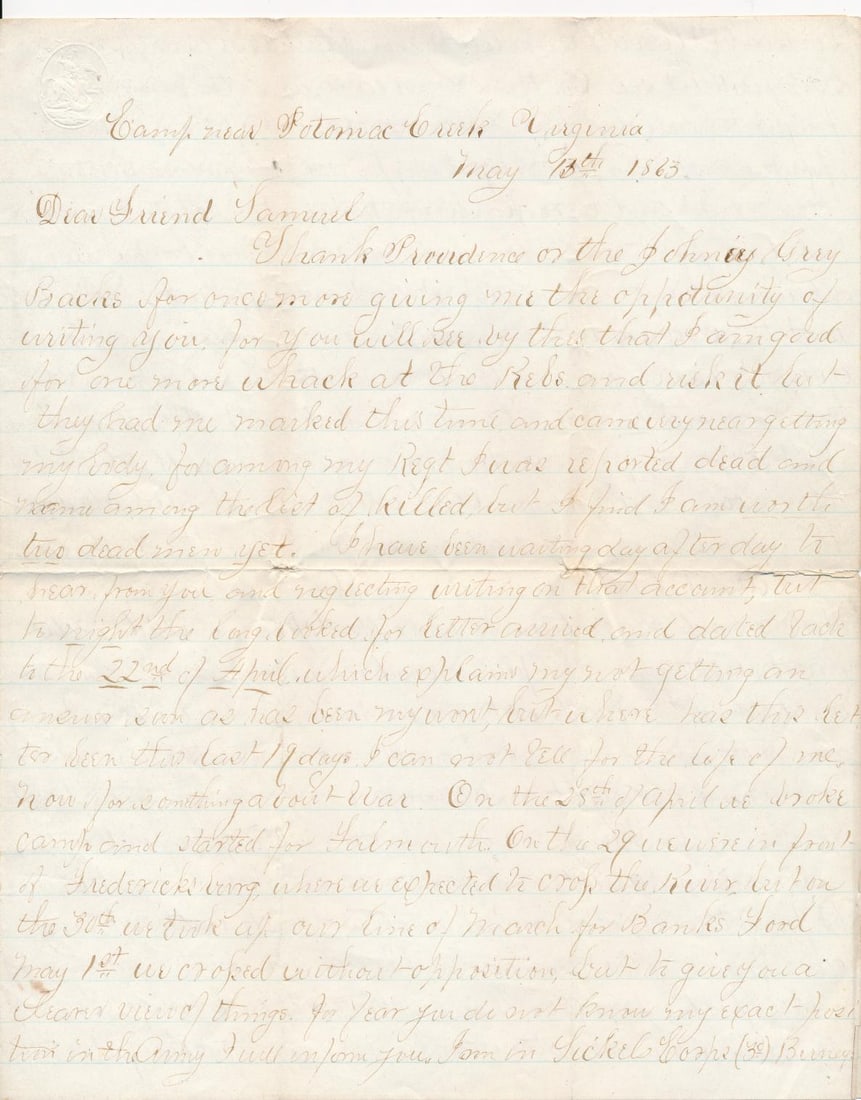 Camp near Potomac Creek Virginia
May 13th 1863
Dear Friend Samuel
Thank Providence or the Johnny Grey
Backs for once more giving me the opportunity of
writing you. for you will see by this that I am good
for one more whack at the Rebs. and risk it but
they had me marked this time and came very near getting
my body. for among my Regt I was reported dead and
name among the list of killed, but I find I am worth
two dead men yet. I have been waiting day after day to
hear from you and neglecting writing on that account, but
to night the long looked for letter arrived. and dated back
to the 22nd of April. which explains my not getting an
answer soon as has been my wont, but where has this let
ter been this last 19 days. I can not tell for the life of me.
Now for something about War. On the 28th of April we broke
camp and started for Falmouth. On the 29 we were in front
of Fredericksburg, where we expected to cross the River. but on
the 30th we took up our line of March for Banks Ford
May 1st we crossed without opposition, but to give you a
clearer view of things. for fear you do not know my exact posi
tion in the Army I will inform you. I am in Sickels Corps (3rd) Birneys